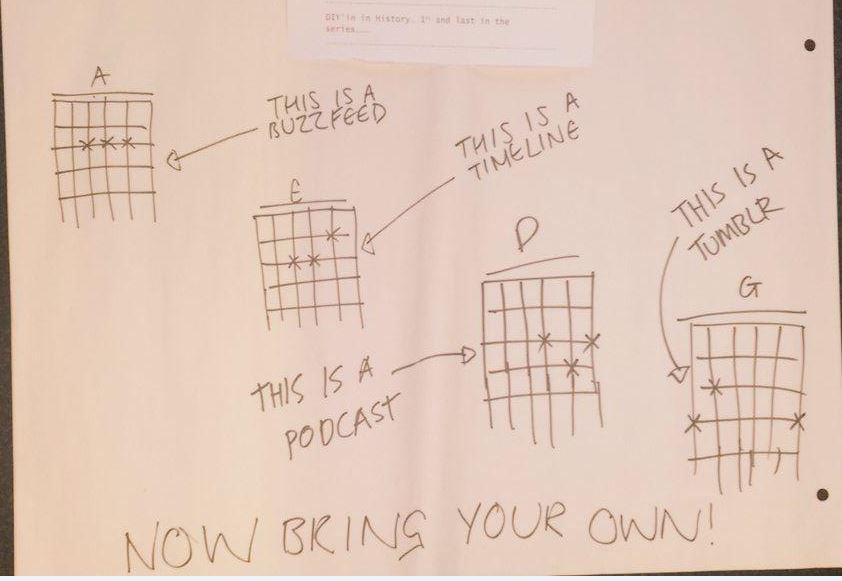 DIY'in in History. 1st and last in the
series....
A
THIS IS A
BUZZFEED
THIS IS A
TIMELINE
E
THIS IS A
TUMBLR
D
G
THIS IS A
PODCAST
NOW BRING YOUR OWN!